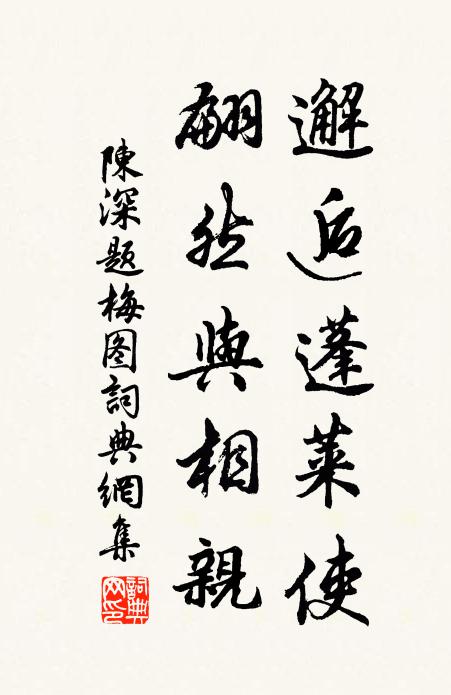 邂逅蓬萊使
翩然與相親
陳深題梅图詞典網集
詞典網印